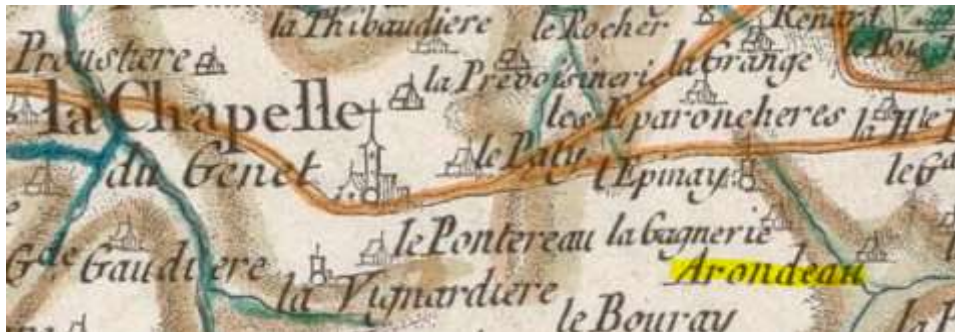 la Thibaudiere
le Rocher
Renard
Proustiere
la Prevoisineri
la Grange
le Bois
la Chapelle
du Genet
les Eparoncheres
la Hte
le Paty
l'Epinay
le Gd
le Pontereau
la Gagnerie
Arondeau
Gde Gaudiere
la Vignardiere
le Bouray
la